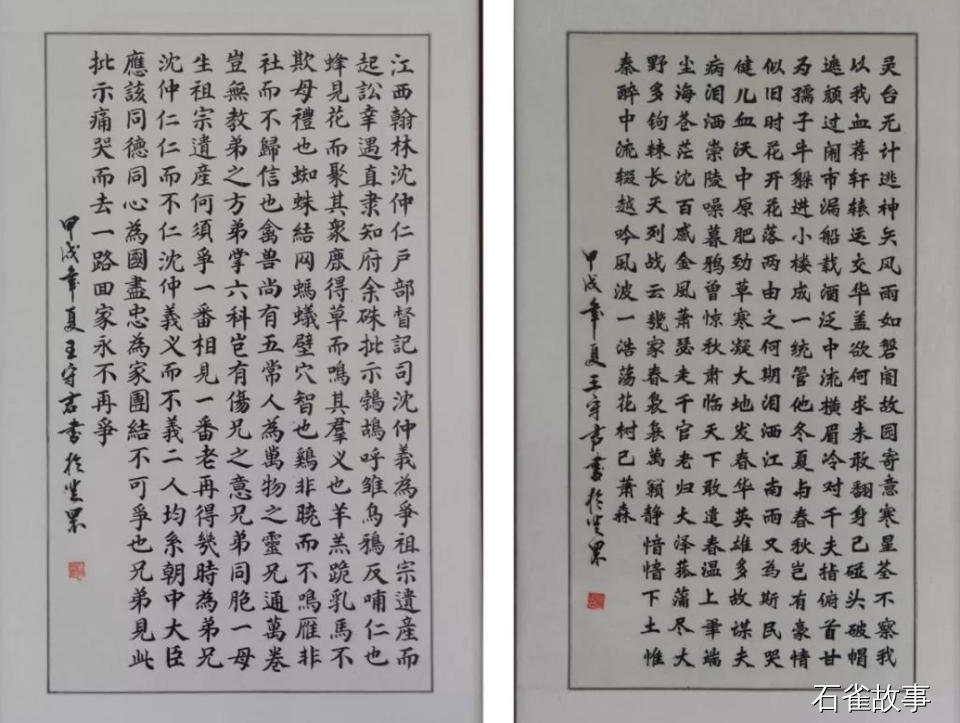 江西翰林沈仲仁戶部督記司沈仲義為爭祖宗遺産而
起訟幸遇直隶知府余硃批示鹁鴣呼雏烏鴉反哺仁也
蜂見花而聚其衆鹿得草而鳴其羣义也羊羔跪乳馬不
欺母禮也蜘蛛結网螞蟻壁穴智也鷄非曉而不鳴雁非
社而不歸信也禽兽尚有五常人為萬物之靈兄通萬卷
豈無教弟之方弟掌六科岂有傷兄之意兄弟同胞一母
生祖宗遺産何須爭一番相見一番老再得幾時為弟兄
沈仲仁仁而不仁沈仲義义而不義二人均系朝中大臣
應該同德同心為國盡忠為家團結不可爭也兄弟見此
批示痛哭而去一路回家永不再爭
甲戌年夏王守君書於
灵台无计逃神矢风雨如磐闇故园寄意寒星荃不察我
以我血荐轩辕运交华盖欲何求未敢翻身已碰头破帽
遮颜过闹市漏船载酒泛中流横眉冷对千夫指俯首甘
为孺子牛躲进小楼成一统管他冬夏与春秋岂有豪情
似旧时花开花落两由之何期泪洒江南雨又為斯民哭
健儿血沃中原肥劲草寒凝大地发春华英雄多故谋夫
病泪洒崇陵噪暮鸦曾惊秋肃临天下敢遣春温上筆端
尘海苍茫沈百感金風萧瑟走千官老归大泽菰蒲尽大
野多钩棘长天列战云幾家春袅袅萬籁静愔愔下土惟
秦醉中流辍越吟風波一浩荡花树已萧森
甲戌年夏王守君書於
石雀故事